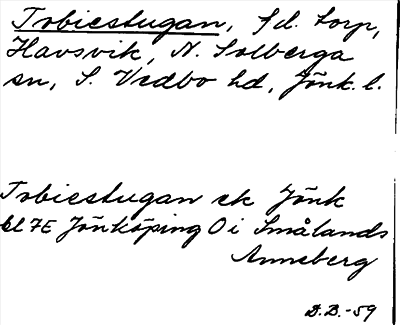 Tobiestugan, f.d. torp,
Havsvik, N. Solberga
sn, S. Vedbo hd, Jönk. l.
Tobiestugan ek Jönk
bl 7E Jönköping O i Smålands
Anneberg
B.B.-59